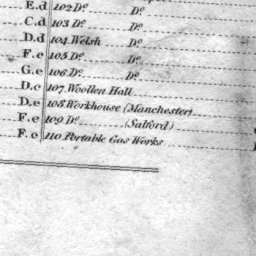 E.d 102 Do. Do.
C.d 103 Do. Do.
D.d 104 Welsh Do.
F.e 105 Do. Do.
G.e 106 Do. Do.
D.c 107 Woollen Hall
D.e 108 Workhouse (Manchester)
F.e 109 Do. (Salford)
F.e 110 Portable Gas Works